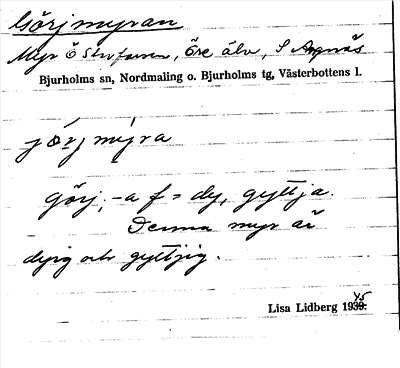 Görjmyran
Myr Ö Storfaren, Öre älv, S Agnäs
Bjurholms sn, Nordmaling o. Bjurholms tg, Västerbottens l.
görjmýra
görj, -a f = dy, gyttja.
Denna myr är
dyig och gyttjig.
Lisa Lidberg 1945